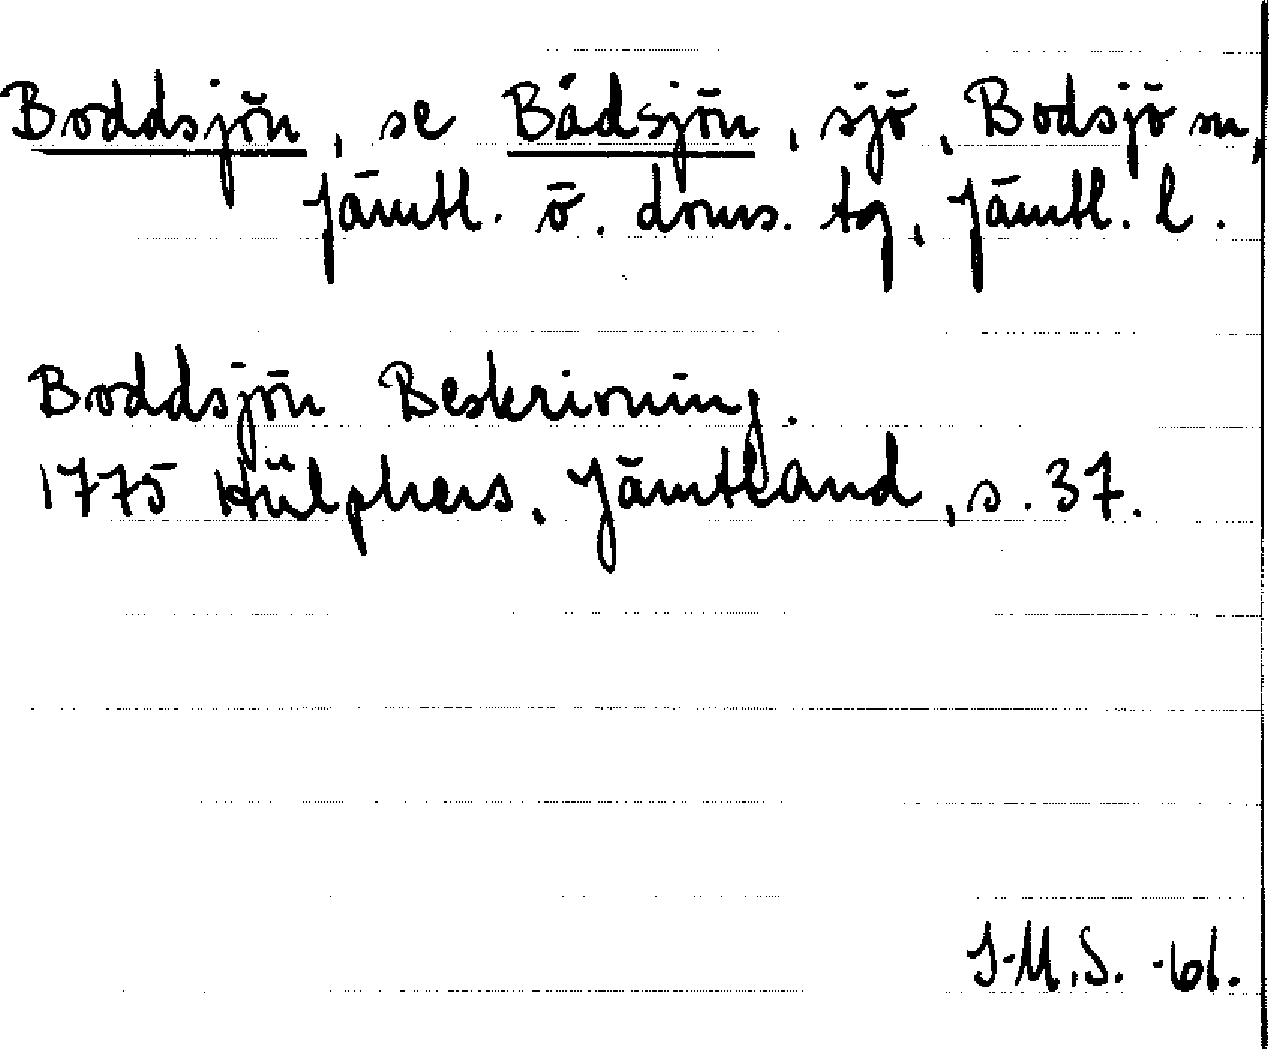 Boddsjön, se Bådsjön, sjö, Bodsjö sn,
Jämtl. ö. doms. tg, Jämtl. l.
Boddsjön Beskrivning.
1775 Hülphers, Jämtland, s. 37.
I-M.S. -61.